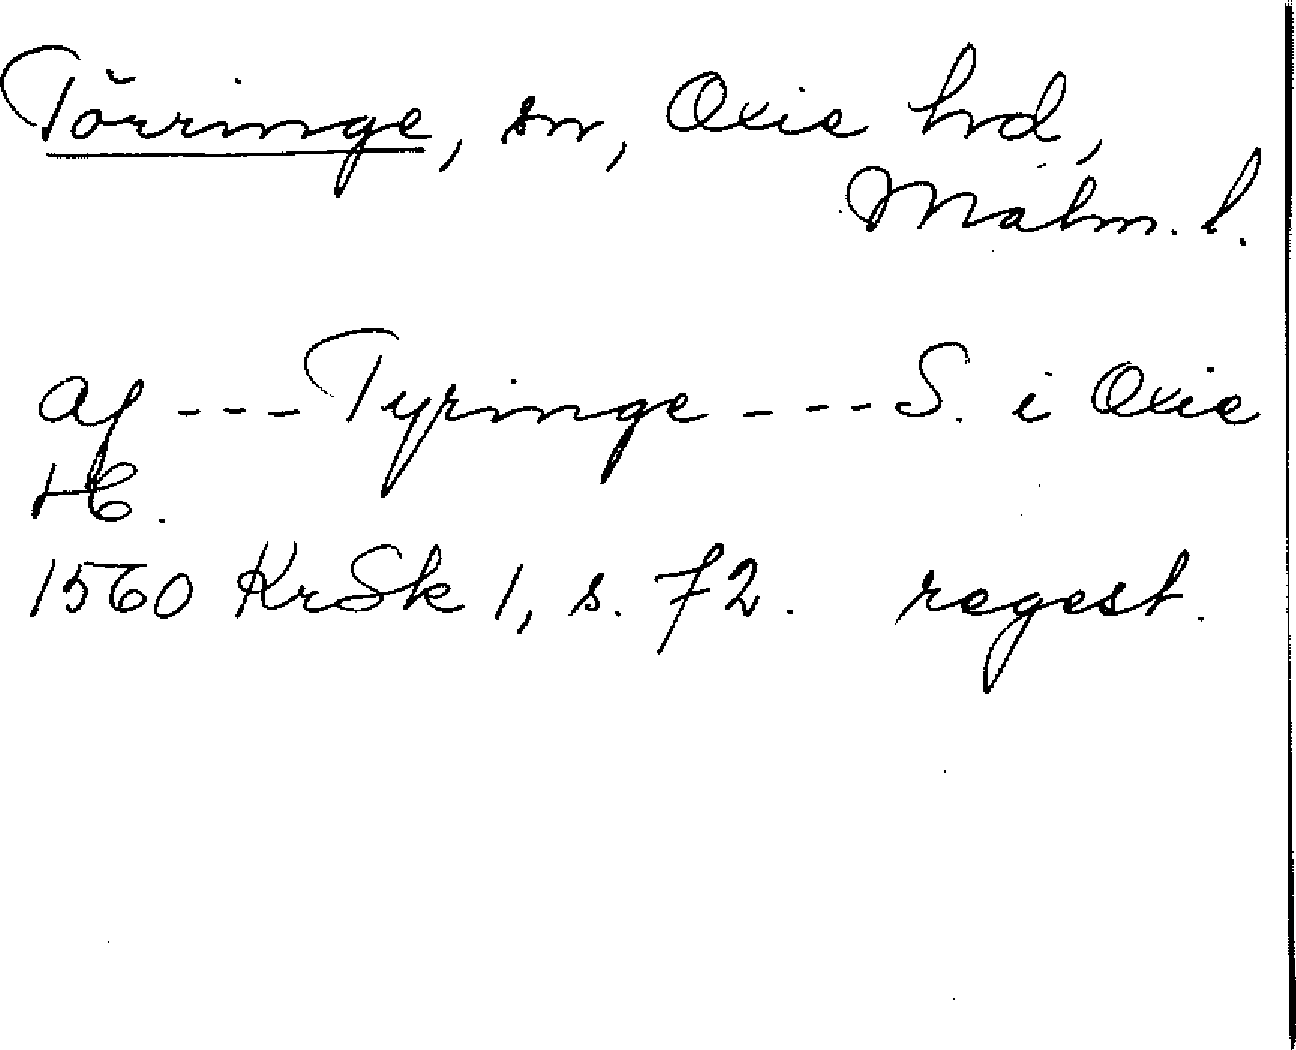 Törringe, sn, Oxie hrd,
Malm. l.
af --- Tyringe --- S. i Oxie
H.
1560 KrSk 1, s. 72. regest.